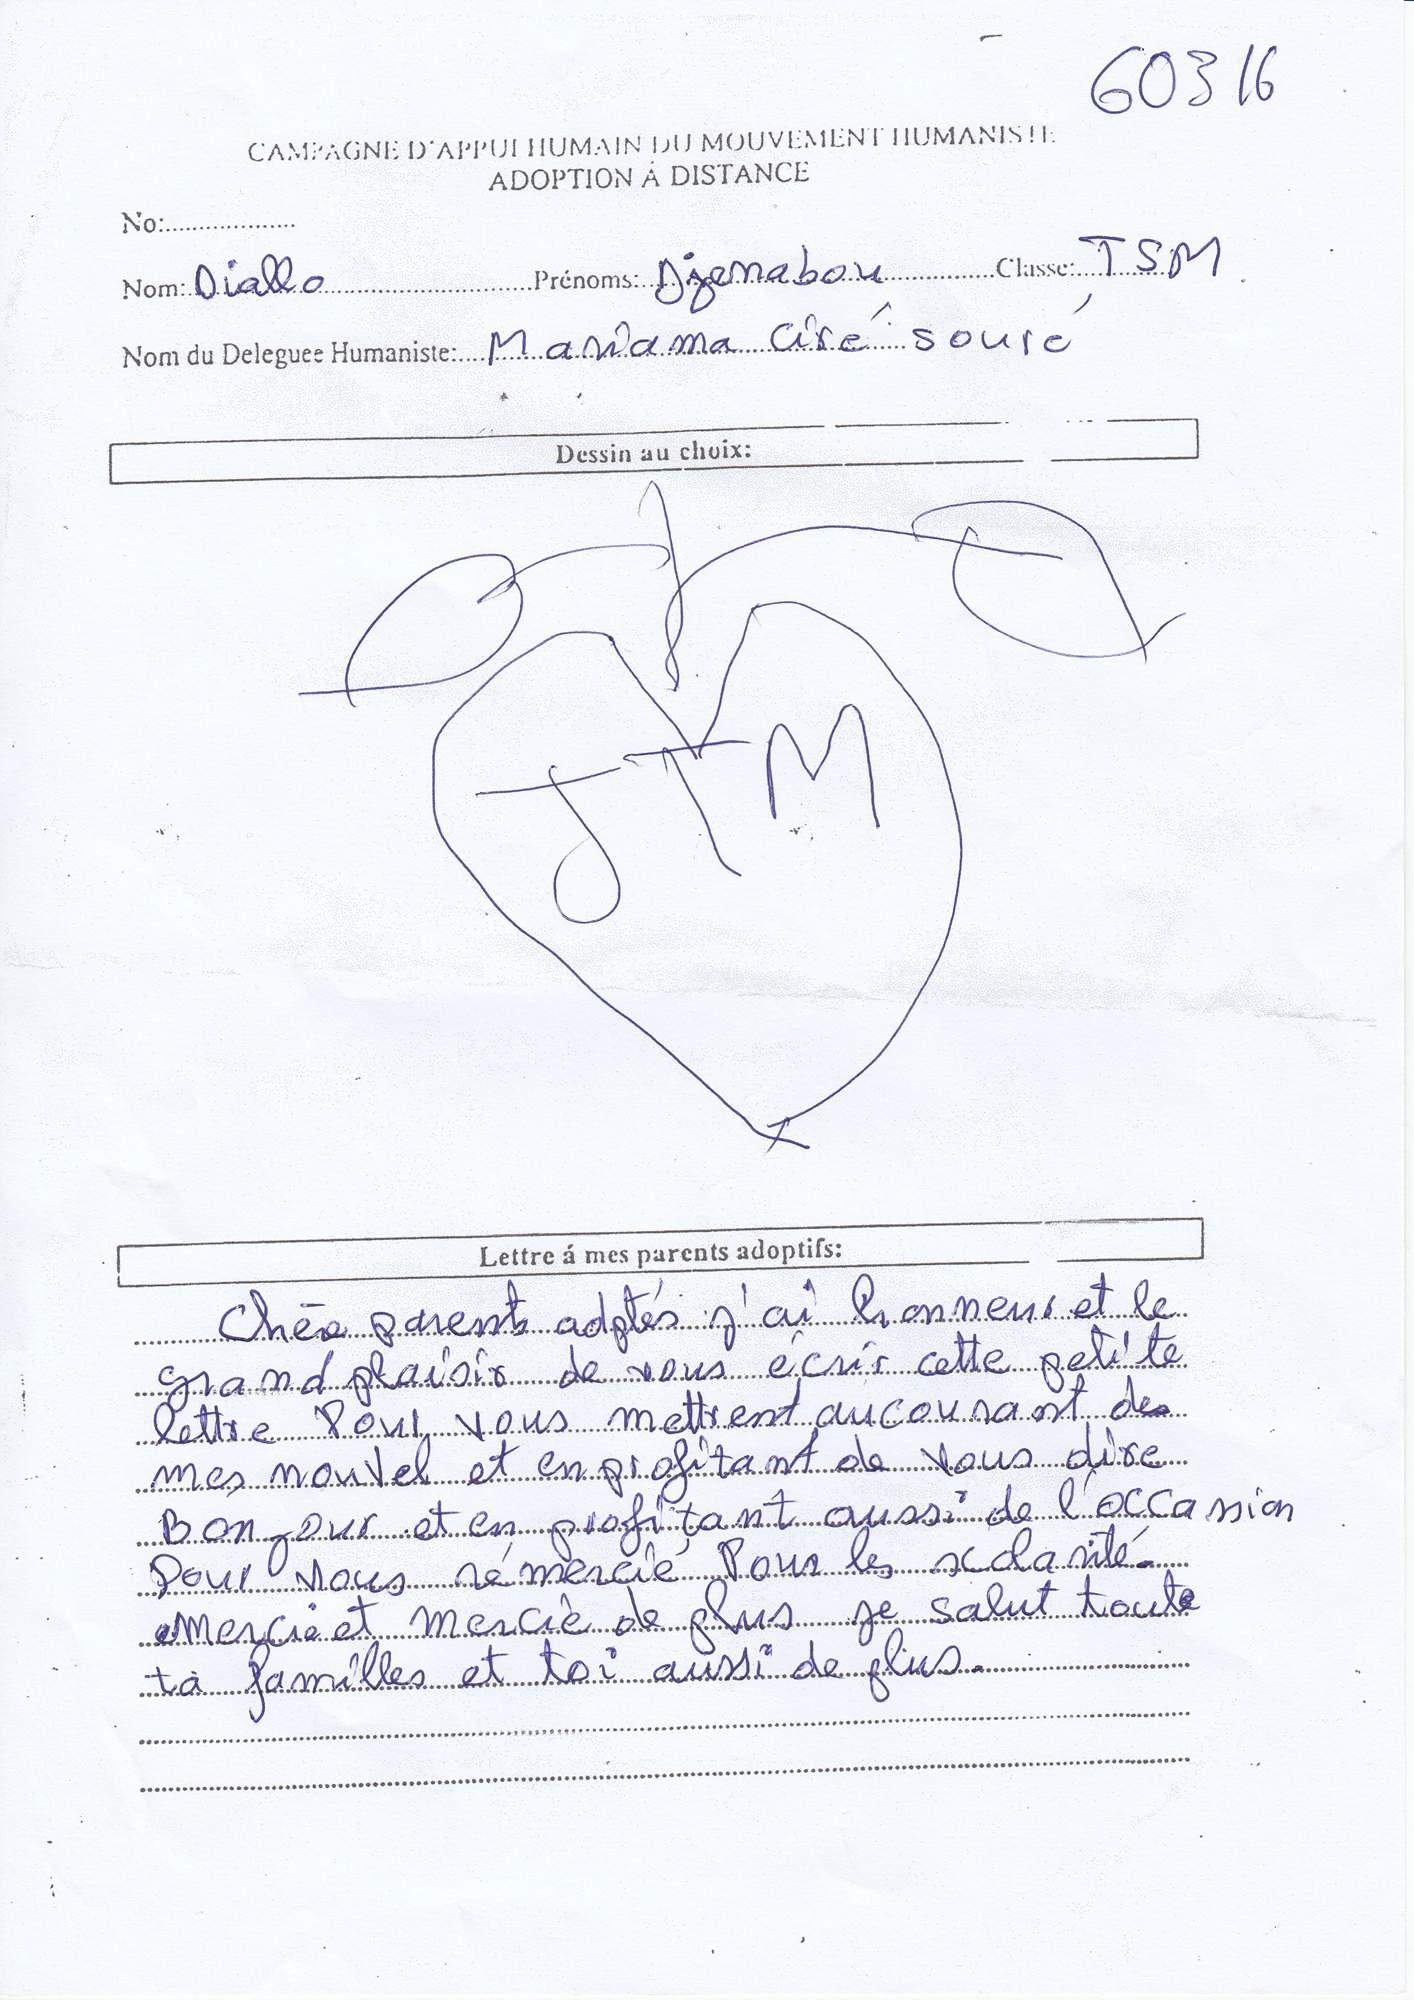 60316
CAMPAGNE D'APPUI HUMAIN DU MOUVEMENT HUMANISTE
ADOPTION À DISTANCE
No:...................
Nom: Diallo Prénoms: Djenabou Classe: TSM
Nom du Deleguee Humaniste: Mariama Ciré souré
Dessin au choix:
JTM
Lettre á mes parents adoptifs:
Chère parents adptés j'ai honneur et le
grand plaisir de vous écrir cette petite
lettre Pour vous mettrent aucourant de
mes nouvel et en profitant de vous dire
Bonjour et en profitant aussi de l'occassion
Pour vous rémercié Pour les scolarité.
Mercie et Mercie de plus je salut toute
ta familles et toi aussi de plus.